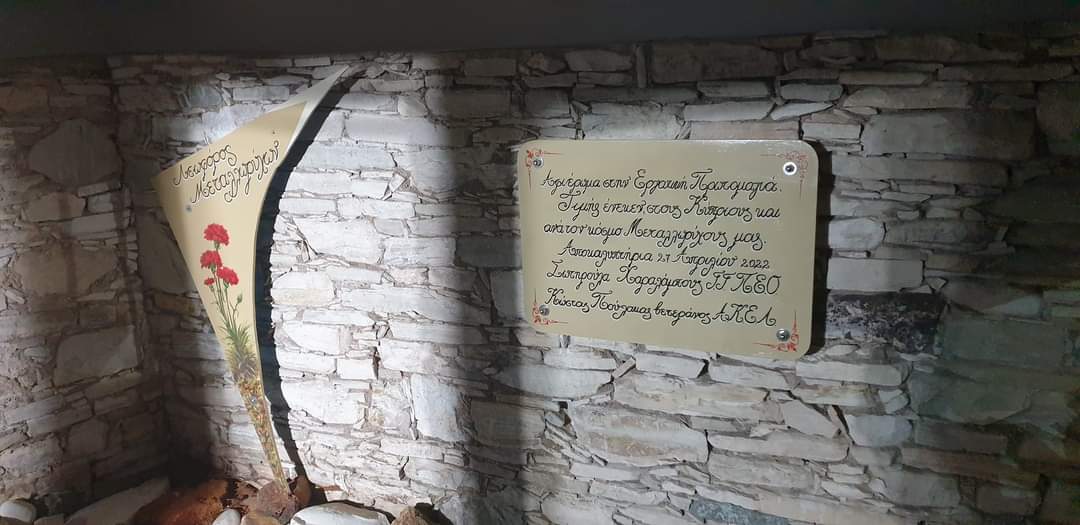 Λεωφόρος
Μεταλλωρύχων
Αφιέρωμα στην Εργατική Πρωτομαγιά.
Τιμής ένεκεν, στους Κύπριους και
ανά τον κόσμο Μεταλλωρύχους μας.
Αποκαλυπτήρια 27 Απριλίου 2022
Σωτηρούλα Χαραλάμπους ΓΓ ΠΕΟ
Κώστας βετεράνος ΑΚΕΛ